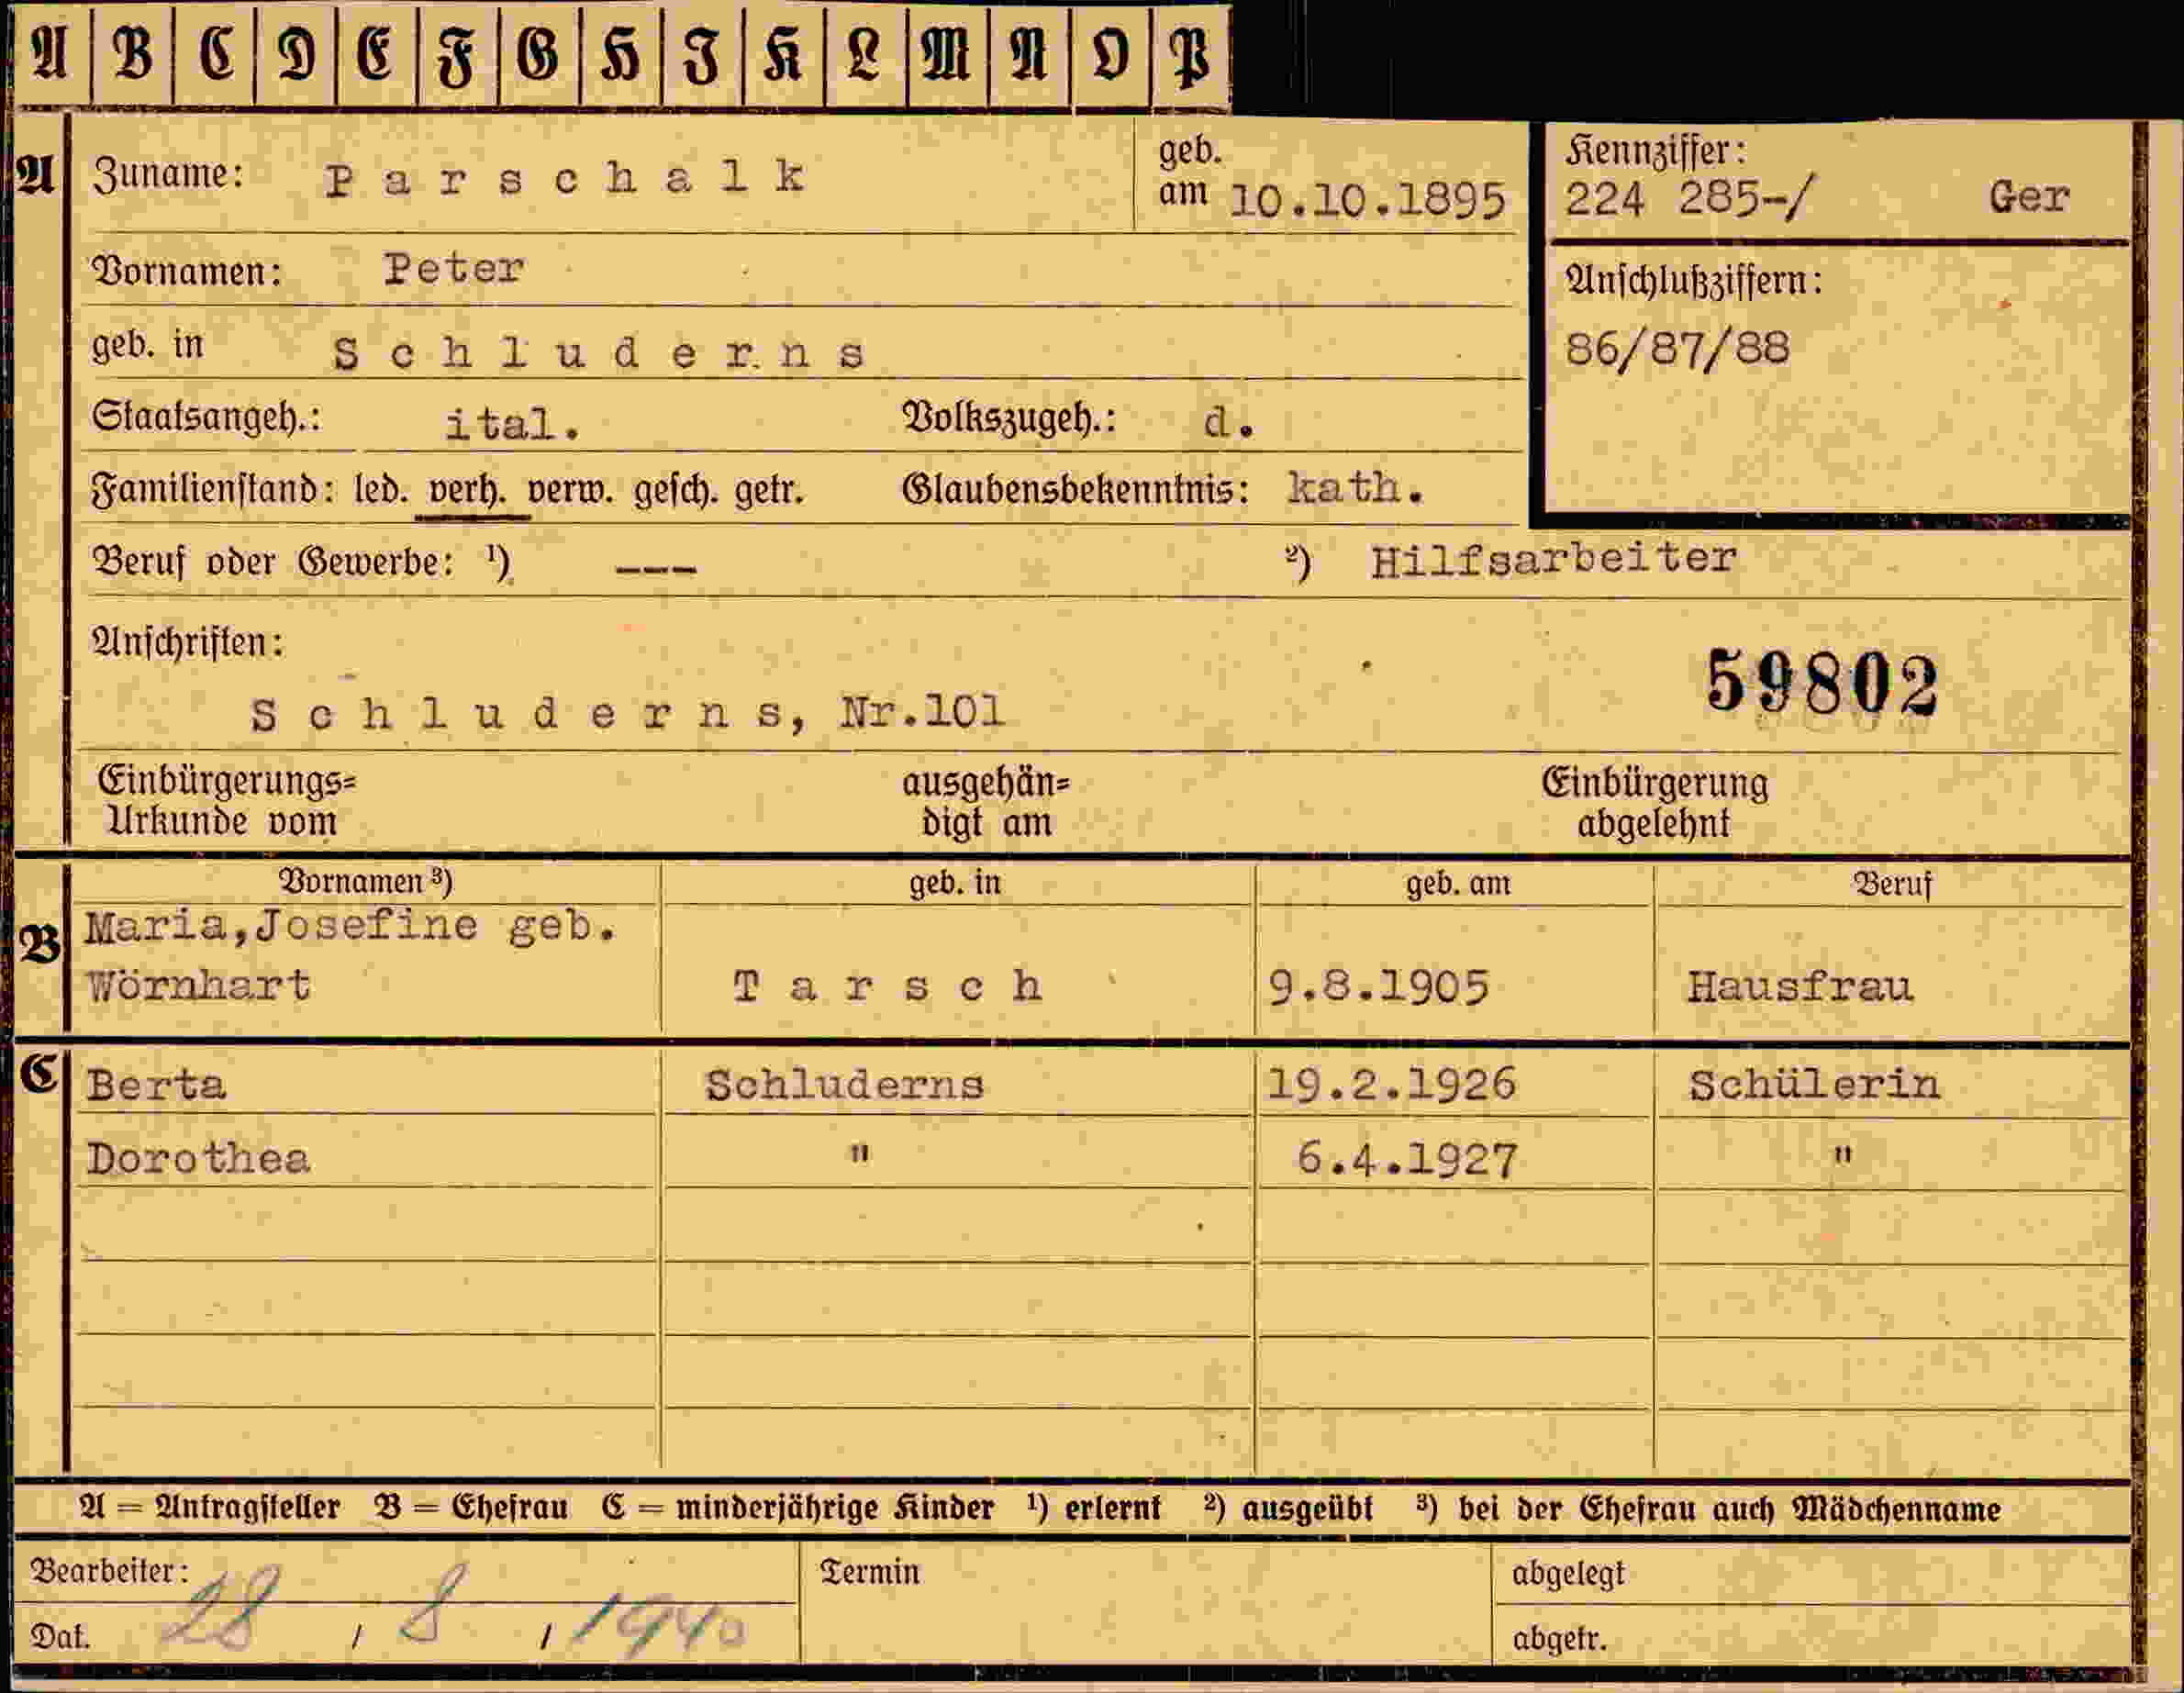 A B C D E F G H I K L M N O P
A Zuname: Parschalk geb. am 10.10.1895 Kennziffer: 224 285-/ Ger
Vornamen: Peter Anschlußziffern:
geb. in Schluderns 86/87/88
Staatsangeh.: ital. Volkszugeh.: d.
Familienstand: led. verh. verw. gesch. getr. Glaubensbekenntnis: kath.
Beruf oder Gewerbe: ¹) --- ²) Hilfsarbeiter
Anschriften:
59802
Schluderns, Nr.101
Einbürgerungs= ausgehän= Einbürgerung
Urkunde vom digt am abgelehnt
Vornamen ³) geb. in geb. am Beruf
B Maria,Josefine geb.
Wörnhart Tarsch 9.8.1905 Hausfrau
C Berta Schluderns 19.2.1926 Schülerin
Dorothea " 6.4.1927 "
A = Antragsteller B = Ehefrau C = minderjährige Kinder ¹) erlernt ²) ausgeübt ³) bei der Ehefrau auch Mädchenname
Bearbeiter: Termin abgelegt
Dat. 28 / 8 / 1940 abgetr.